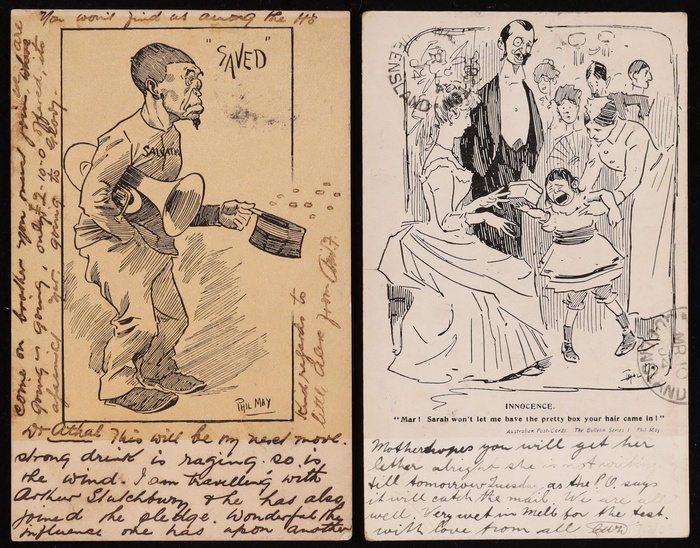 You won't find us among the
come on broker you mind your are
going is going, only £2-10-0 offered, its
going to Glory.
"SAVED"
SALVATI
PHIL MAY
Kind regards to
little Alex from
Dr Athol This will be my next move.
strong drink is raging. so is
the wind. I am travelling with
Arthur & he has also
joined the pledge. Wonderful the
influence one has upon another
EENSLAND
INNOCENCE.
"Mar! Sarah won't let me have the pretty box your hair came in!"
Australian Post-Cards The Bulletin Series I Phil May
Mother hopes you will get her
letter alright she is not writing
till tomorrow Tuesday, as the P.O. says
it will catch the mail. We are all
well. Very wet in Melb for the test.
with love from all